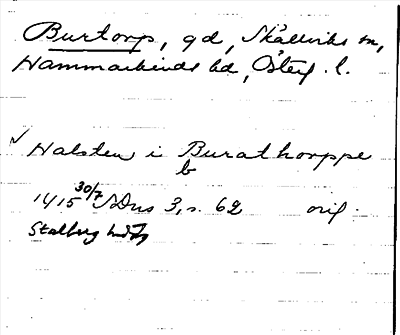 Burtorp, gd, Skällviks sn,
Hammarkinds hd, Österg. l.
✓ Halsten i Burathorppe
b
1415 30/7 SDns 3, s. 62 orig.
Stalberg